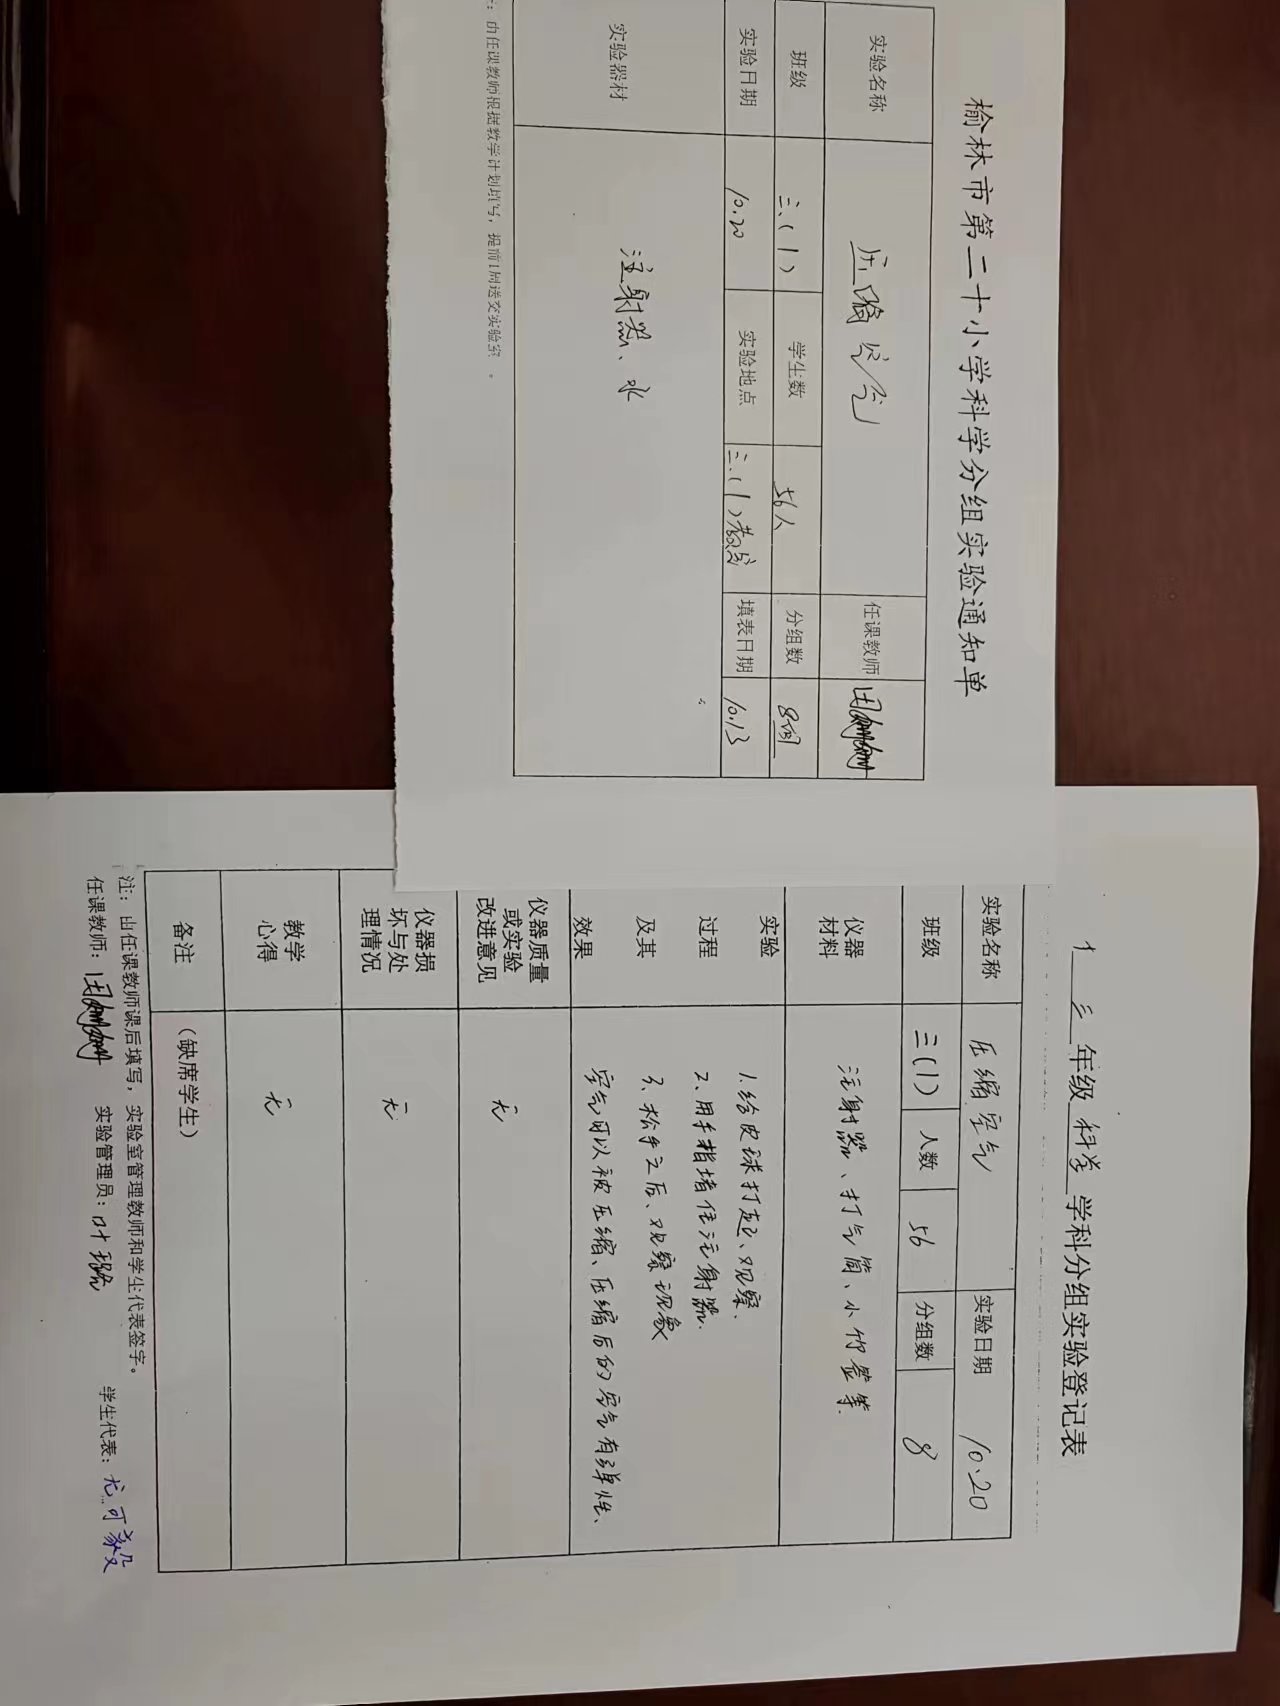 榆林市第二十小学科学分组实验通知单
实验名称 压缩空气 任课教师
班级 三(1) 学生数 56人 分组数 8组
实验日期 10.20 实验地点 三.(1)教室 填表日期 10.13
实验器材 注射器、水
：由任课教师根据教学计划填写，提前1周送交实验室。
三 年级 科学 学科分组实验登记表
实验名称 压缩空气 实验日期 10.20
班级 三(1) 人数 56 分组数 8
仪器材料 注射器、打气筒、小竹签等
实验过程及其效果
1.给皮球打起、观察.
2、用手指堵住注射器.
3、松手之后、观察现象
空气可以被压缩、压缩后的空气有弹性、
仪器质量或实验改进意见 无
仪器损坏与处理情况 无
教学心得 无
备注 (缺席学生)
注：由任课教师课后填写，实验室管理教师和学生代表签字。
任课教师： 实验管理员：叶 学生代表：尤可毅